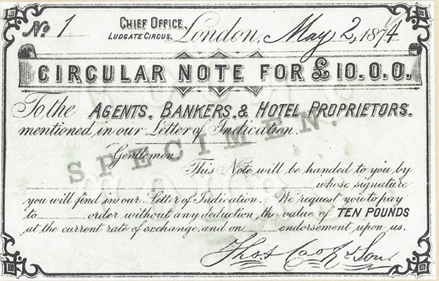 No. 1 CHIEF OFFICE, LUDGATE CIRCUS, London, May 2, 1874.
CIRCULAR NOTE FOR £10.0.0.
To the AGENTS, BANKERS, & HOTEL PROPRIETORS.
mentioned, in our Letter of Indication.
SPECIMEN.
Gentlemen,
This Note will be handed to you by
whose signature
you will find in our Letter of Indication. We request you to pay
to order without any deduction, the value of TEN POUNDS
at the current rate of exchange, and one endorsement upon us.
Thos Cook & Son.